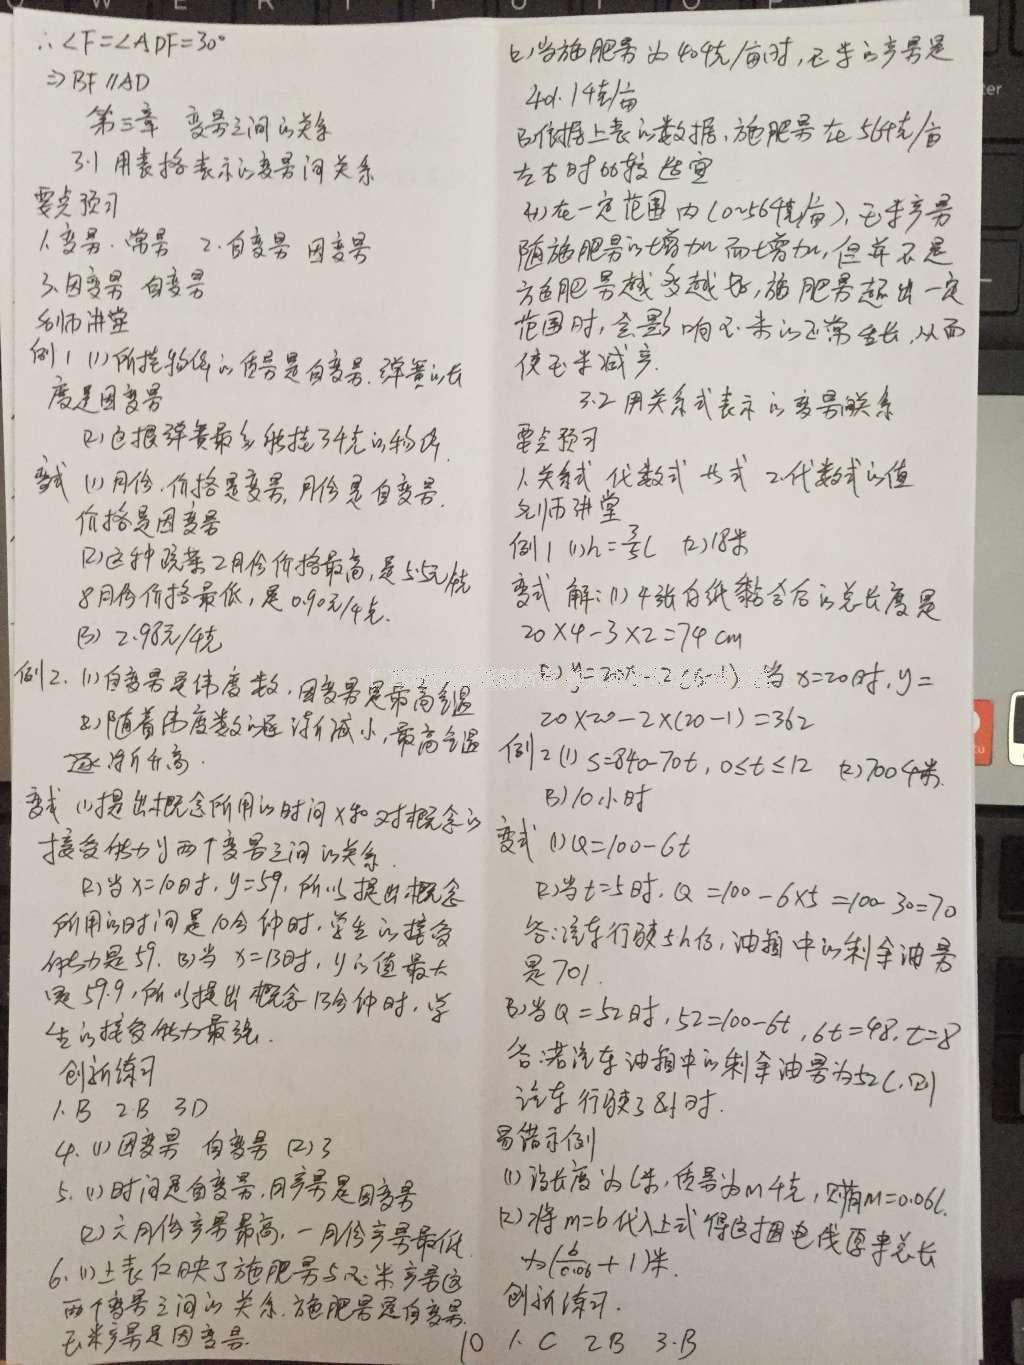 ∴∠F=∠ADF=30°
⇒BF∥AD
第三章 变量之间的关系
3.1 用表格表示的变量间关系
要点预习
1.变量.常量 2.自变量 因变量
3.因变量 自变量
名师讲堂
例1 (1)所挂物体的质量是自变量.弹簧的长
度是因变量
(2)这根弹簧最多能挂3千克的物体.
变式 (1)月份.价格是变量,月份是自变量.
价格是因变量
(2)这种蔬菜2月份价格最高,是5.5元/千克
8月份价格最低,是0.90元/千克.
(3) 2.98元/千克
例2. (1)自变量是纬度数.因变量是最高气温
(2)随着纬度数的逐渐减小,最高气温
逐渐升高.
变式 (1)提出概念所用的时间x和对概念的
接受能力y两个变量之间的关系.
(2)当x=10时,y=59,所以提出概念
所用的时间是10分钟时,学生的接受
能力是59. (3)当x=13时,y的值最大
是59.9,所以提出概念13分钟时,学
生的接受能力最强.
创新练习
1.B 2B 3D
4.(1)因变量 自变量 (2)3
5.(1)时间是自变量,月产量是因变量
(2)六月份产量最高,一月份产量最低
6.(1)上表反映了施肥量与玉米产量这
两个变量之间的关系.施肥量是自变量.
玉米产量是因变量.
(2)当施肥量为40千克/亩时,玉米的产量是
40.1千克/亩
(3)依据上表的数据,施肥量在56千克/亩
左右时比较适宜
(4)在一定范围内(0~56千克/亩),玉米产量
随施肥量的增加而增加,但并不是
施肥量越多越好,施肥量超出一定
范围时,会影响玉米的正常生长,从而
使玉米减产.
3.2 用关系式表示的变量间关系
要点预习
1.关系式 代数式 等式 2.代数式的值
名师讲堂
例1 (1)h=L (2)18米
变式 解:(1)4张白纸黏合后的总长度是
20×4-3×2=74cm
(2)y=20x-2(x-1) 当x=20时,y=
20×20-2×(20-1)=362
例2(1)S=840-70t,0≤t≤12 (2)700千米
(3)10小时
变式 (1)Q=100-6t
(2)当t=5时.Q=100-6×5=100-30=70
答:汽车行驶5h后,油箱中的剩余油量
是70l
(3)当Q=52时,52=100-6t,6t=48.t=8
答:若汽车油箱中的剩余油量为52L.则
汽车行驶了8小时.
易错示例
(1)设长度为L米,质量为m千克,则有m=0.06L.
(2)将m=b代入上式得这捆电线原来总长
为(b/0.06+1)米.
创新练习.
10 1.C 2B 3.B